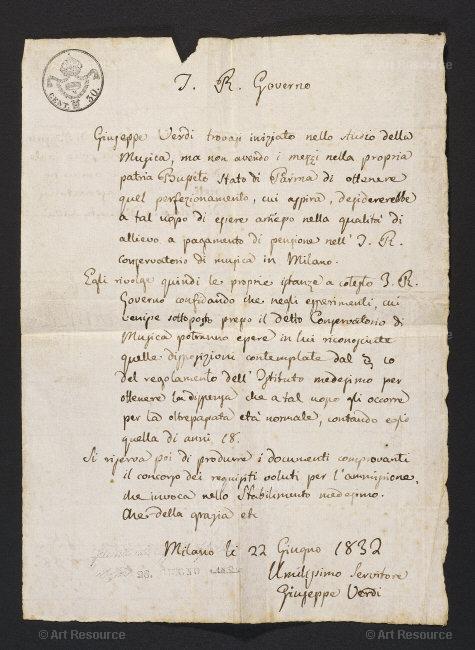 CENT. 30.
I. R. Governo
Giuseppe Verdi trovasi iniziato nello studio della
Musica, ma non avendo i mezzi nella propria
patria Bupeto Stato di Parma di ottenere
quel perfezionamento, cui aspira, desidererebbe
a tal uopo di essere ammesso nella qualità di
allievo a pagamento di pensione nell' I. R.
Conservatorio di musica in Milano.
Egli rivolge quindi le proprie istanze a cotesto I. R.
Governo confidando che negli esperimenti, cui
venisse sottoposto presso il detto Conservatorio di
Musica potranno essere in lui riconosciute
quelle disposizioni contemplate dal § 10
del regolamento dell' Istituto medesimo per
ottenere la dispensa che a tal uopo gli occorre
per la oltrepassata età normale, contando esso
quella di anni 18.
Si riserva poi di produrre i documenti comprovanti
il concorso dei requisiti voluti per l'ammissione,
che invoca nello Stabilimento medesimo.
Che della grazia etc
Milano li 22 Giugno 1832
Umilissimo Servitore
Giuseppe Verdi
28. GIUGNO
© Art Resource
© Art Resource
© Art Resource